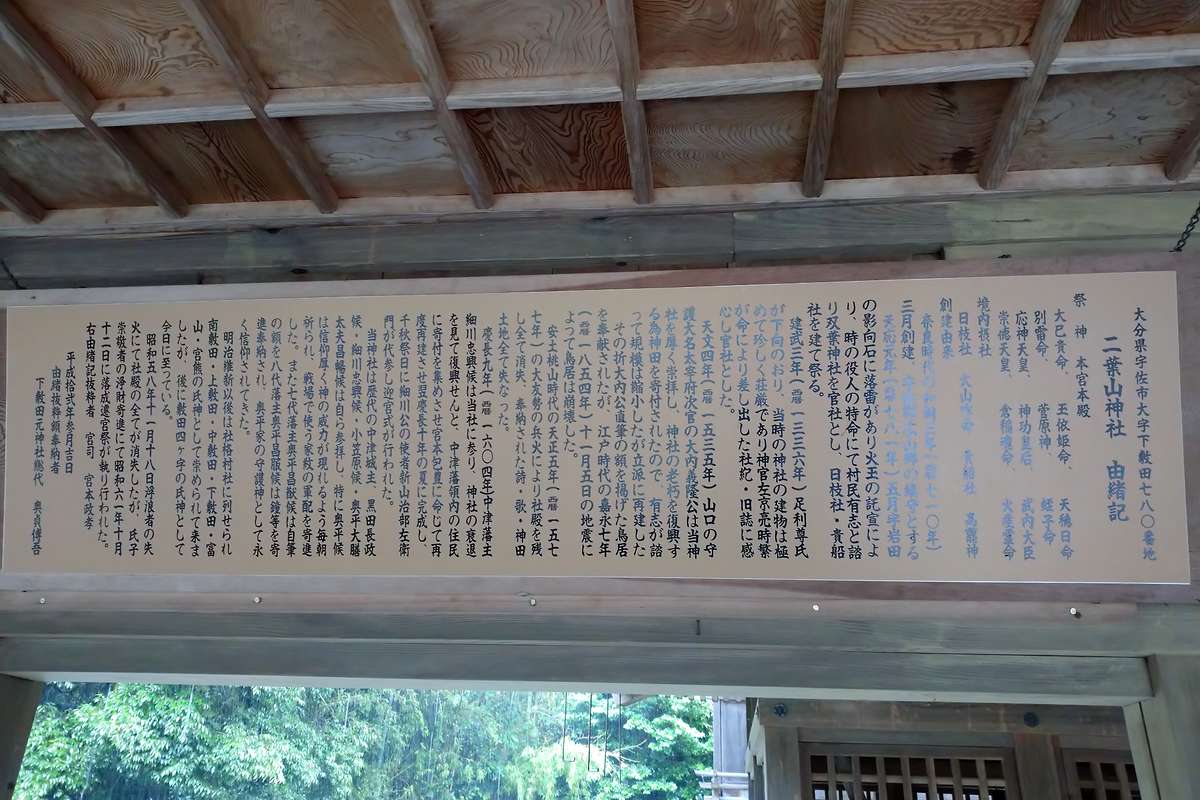 大分県宇佐市大字下敷田七八〇番地
二葉山神社 由緒記
祭神 本宮本殿
大己貴命、 玉依姫命、 天穂日命
別雷命、 菅原神、 蛭子命
応神天皇、 神功皇后、 武内大臣
崇徳天皇、 倉稲魂命、 火産霊命
境内摂社
日枝社 大山咋命 貴船社 高龗神
創建由来
奈良時代の和銅三年(西暦七一〇年)
三月創建、
天応元年(西暦七八一年)五月宇岩田
の影向石に落雷があり火王の託宣によ
り、時の役人の特命にて村民有志と諮
り双葉神社を官社とし、日枝社・貴船
社を建て祭る。
建武三年(西暦一三三六年)足利尊氏
が下向のおり、当時の神社の建物は極
めて珍しく荘厳であり神官左京亮時繁
が命により差し出した社紀・旧誌に感
心し官社とした。
天文四年(西暦一五三五年)山口の守
護大名太宰府次官の大内義隆公は当神
社を厚く崇拝し、神社の老朽を復興す
る為神田を寄付されたので、有志が諮
って規模は縮小したが立派に再建した
その折大内公直筆の額を掲げた鳥居
を奉献されたが、江戸時代の嘉永七年
(西暦一八五四年)十一月五日の地震に
よって鳥居は崩壊した。
安土桃山時代の天正五年(西暦一五七
七年)の大友勢の兵火により社殿を残
し全て消失、奉納された詩・歌・神田
土地全て失なった。
慶長九年(西暦一六〇四年)中津藩主
細川忠興候は当社に参り、神社の衰退
を見て復興せんと、中津藩領内の住民
に寄付を集めさせ宮本包夏に命じて再
度再建させ翌慶長十年の夏に完成し、
千秋祭日に細川公の使者新山治部左衛
門が代参し迎宮式が行われた。
当神社は歴代の中津城主、黒田長政
候・細川忠興候、小笠原候・奥平大膳
太夫昌暢候は自ら参拝し、特に奥平候
は信仰厚く神の威力が現れるよう毎朝
祈られ、戦場で使う家紋の軍配を寄進
した。また七代藩主奥平昌猷候は自筆
の額を八代藩主奥平昌服候は鐘等を寄
進奉納され、奥平家の守護神として永
く信仰されてきた。
明治維新以後は社格村社に列せられ
南敷田・上敷田・中敷田・下敷田・富
山・宮熊の氏神として崇められて来ま
したが、後に敷田四ヶ字の氏神として
今日に至っている。
昭和五八年十一月十八日浮浪者の失
火にて社殿の全てが消失したが、氏子
崇敬者の浄財寄進にて昭和六一年十月
十二日に落成遷宮祭が執り行われた。
右由緒記抜粋者 宮司 宮本政孝
平成拾弐年参月吉日
由緒抜粋額奉納者
下敷田元神社総代 奥貞傳吾